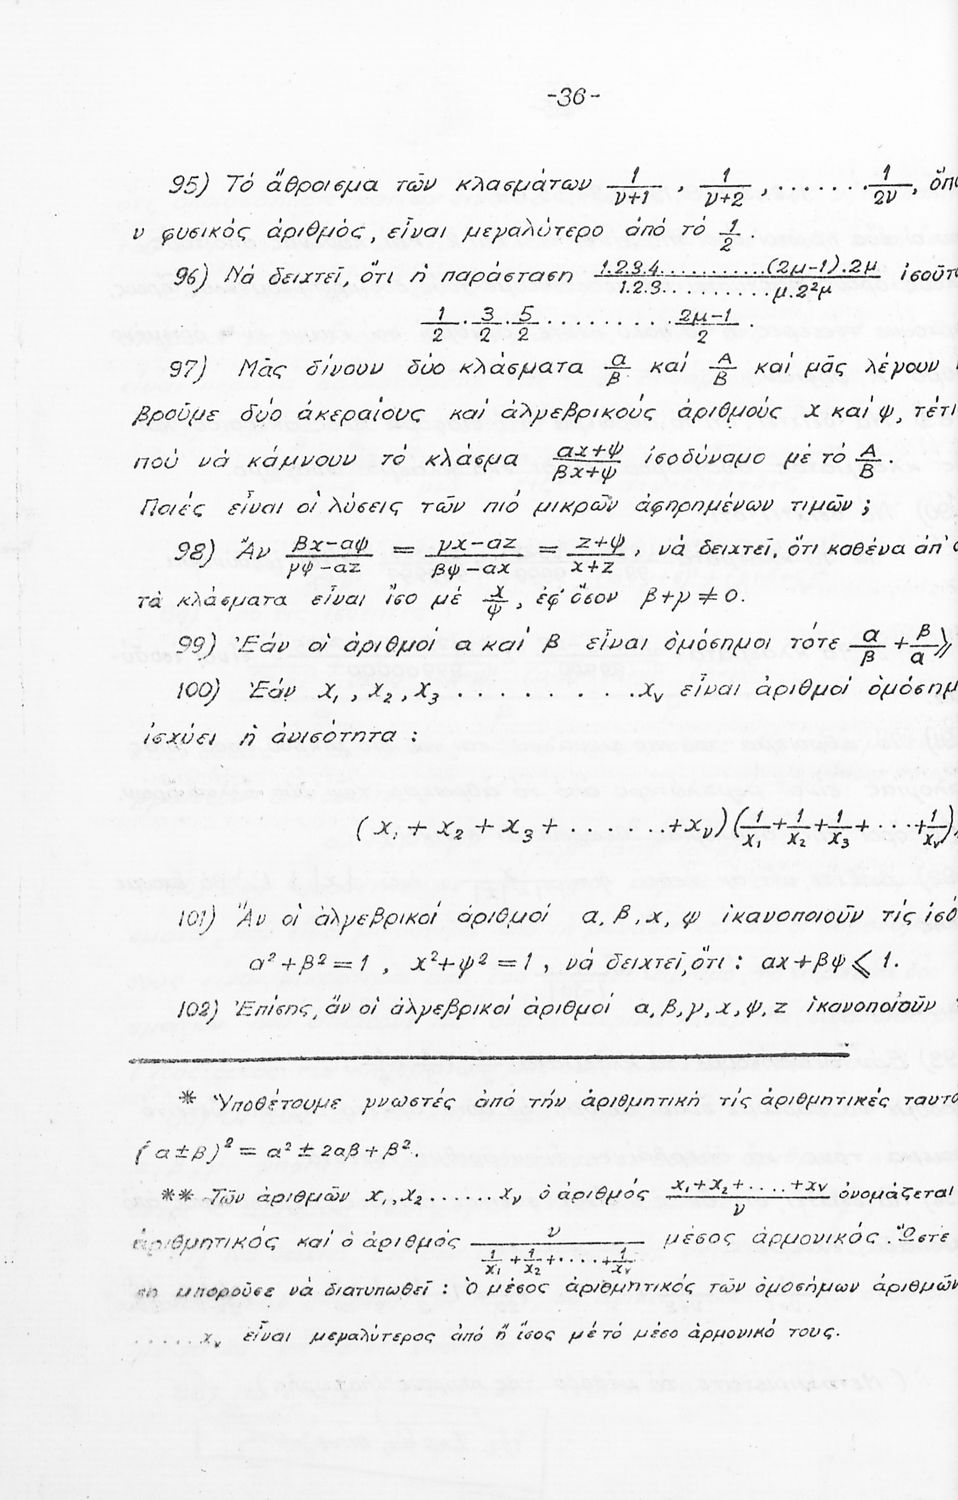 -36-
95) Τό ἄθροισμα τῶν κλασμάτων 1/(ν+1) , 1/(ν+2) , ....... 1/(2ν) , ὅπ
ν φυσικός ἀριθμός, εἶναι μεγαλύτερο ἀπό τό 1/2 .
96) Νά δειχτεῖ, ὅτι ἡ παράσταση (1.2.3.4...........(2μ-1).2μ)/(1.2.3..........μ.2^2μ) ἰσοῦτ
1/2 . 3/2 . 5/2 .......... (2μ-1)/2 .
97) Μᾶς δίνουν δύο κλάσματα α/β καί Α/Β καί μᾶς λέγουν
βροῦμε δύο ἀκεραίους καί ἀλγεβρικούς ἀριθμούς x καί ψ, τέτι
πού νά κάμνουν τό κλάσμα (αx+ψ)/(βx+ψ) ἰσοδύναμο μέ τό Α/Β .
Ποιές εἶναι οἱ λύσεις τῶν πιό μικρῶν ἀφηρημένων τιμῶν ;
98) Ἄν (βx-αψ)/(γψ-αz) = (γx-αz)/(βψ-αx) = (z+ψ)/(x+z) , νά δειχτεῖ, ὅτι καθένα ἀπ'
τά κλάσματα εἶναι ἴσο μέ x/ψ , ἐφ' ὅσον β+γ ≠ 0.
99) Ἐάν οἱ ἀριθμοί α καί β εἶναι ὁμόσημοι τότε α/β + β/α ⩾
100) Ἐάν x₁ , x₂ , x₃ ......... xᵥ εἶναι ἀριθμοί ὁμόσημ
ἰσχύει ἡ ἀνισότητα :
( x₁ + x₂ + x₃ + ...... +xᵥ ) ( 1/x₁ + 1/x₂ + 1/x₃ + ... + 1/xᵥ )
101) Ἄν οἱ ἀλγεβρικοί ἀριθμοί α, β, x, ψ ἱκανοποιοῦν τίς ἰσό
α² + β² = 1 , x² + ψ² = 1 , νά δειχτεῖ, ὅτι : αx + βψ ⩽ 1.
102) Ἐπίσης, ἄν οἱ ἀλγεβρικοί ἀριθμοί α, β, γ, x, ψ, z ἱκανοποιοῦν
* Ὑποθέτουμε γνωστές ἀπό τήν ἀριθμητική τίς ἀριθμητικές ταυτό
( α ± β )² = α² ± 2αβ + β² .
** Τῶν ἀριθμῶν x₁, x₂ ...... xᵥ ὁ ἀριθμός (x₁+x₂+....+xᵥ)/ν ὀνομάζεται
ἀριθμητικός καί ὁ ἀριθμός ν/(1/x₁ + 1/x₂ + .... + 1/xᵥ) μέσος ἁρμονικός. Ὥστε
μποροῦσε νά διατυπωθεῖ : Ὁ μέσος ἀριθμητικός τῶν ὁμοσήμων ἀριθμῶν
...... xᵥ εἶναι μεγαλύτερος ἀπό ἤ ἴσος μέ τό μέσο ἁρμονικό τους.